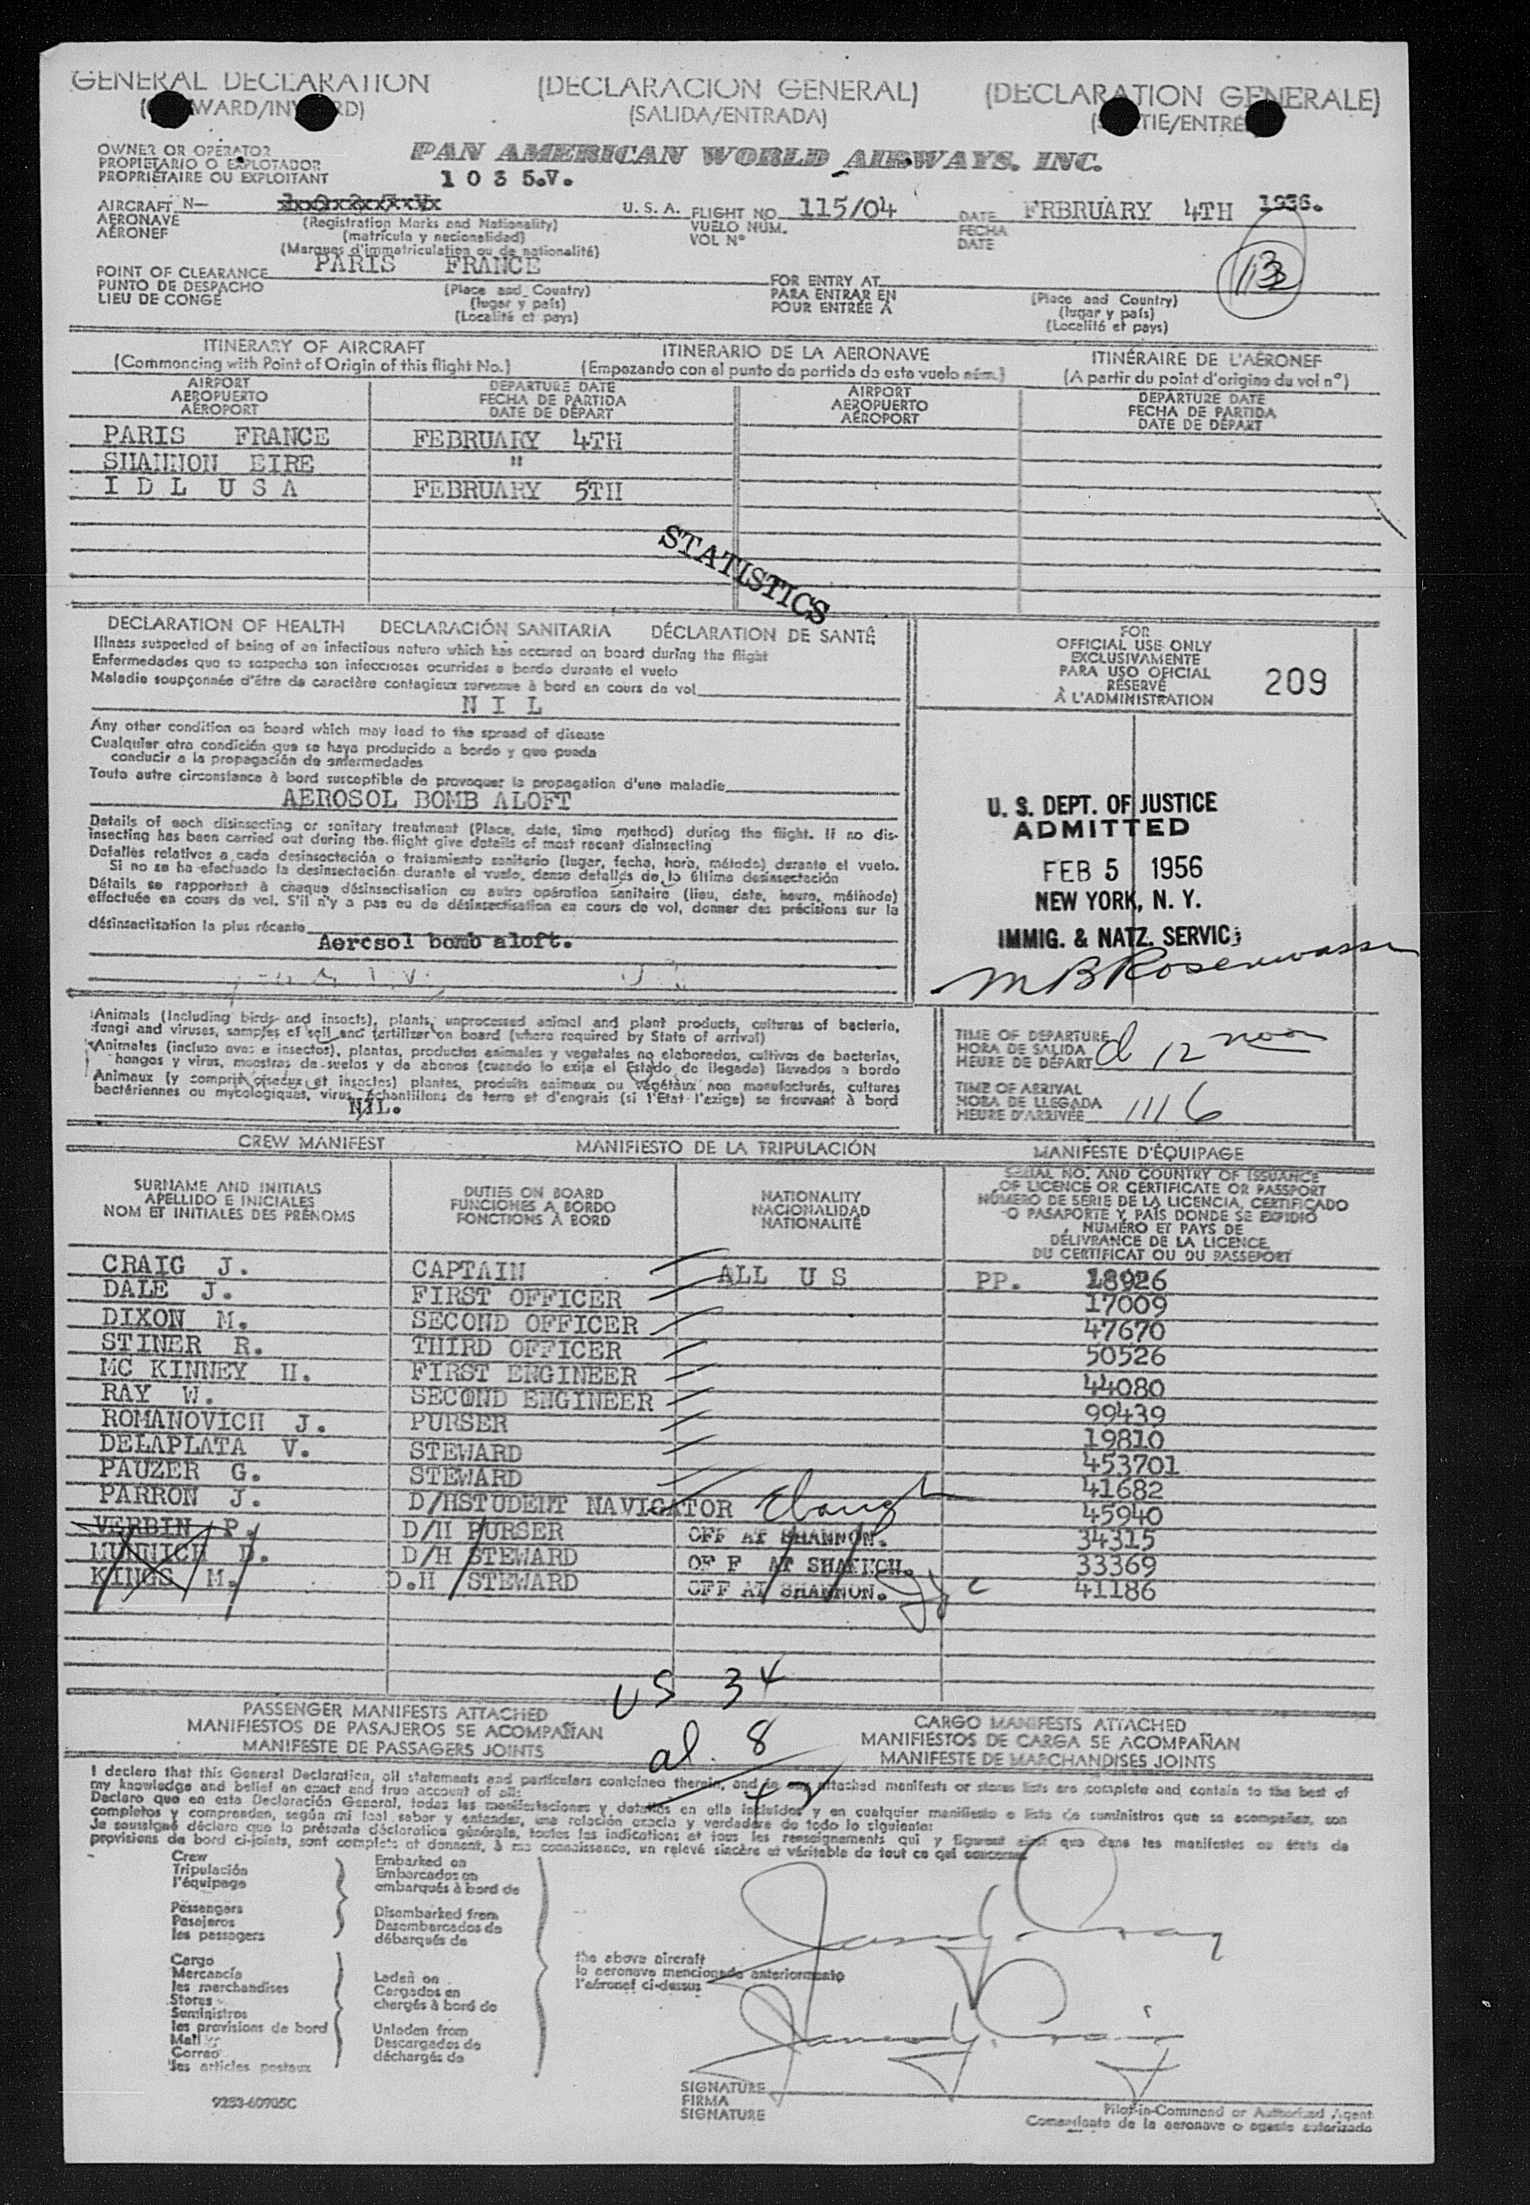 GENERAL DECLARATION
(DECLARACION GENERAL)
(DECLARATION GENERALE)
(SALIDA/ENTRADA)
OWNER OR OPERATOR
PROPIETARIO O EXPLOTADOR
PROPRIÉTAIRE OU EXPLOITANT
PAN AMERICAN WORLD AIRWAYS, INC.
1 0 3 5.V.
AIRCRAFT N—
AERONAVE
AÉRONEF
(Registration Marks and Nationality)
(matrícula y nacionalidad)
(Marques d'immatriculation ou de nationalité)
U. S. A.
FLIGHT NO. 115/04
VUELO NUM.
VOL Nº
DATE FRBRUARY 4TH
FECHA
DATE
POINT OF CLEARANCE PARIS FRANCE
PUNTO DE DESPACHO
LIEU DE CONGÉ
(Place and Country)
(lugar y país)
(Localité et pays)
FOR ENTRY AT
PARA ENTRAR EN
POUR ENTRÉE À
(Place and Country)
(lugar y país)
(Localité et pays)
ITINERARY OF AIRCRAFT
(Commencing with Point of Origin of this flight No.)
ITINERARIO DE LA AERONAVE
(Empezando con el punto de partida de este vuelo núm.)
ITINÉRAIRE DE L'AÉRONEF
(A partir du point d'origine du vol nº)
AIRPORT
AEROPUERTO
AÉROPORT
DEPARTURE DATE
FECHA DE PARTIDA
DATE DE DÉPART
AIRPORT
AEROPUERTO
AÉROPORT
DEPARTURE DATE
FECHA DE PARTIDA
DATE DE DÉPART
PARIS FRANCE FEBRUARY 4TH
SHANNON EIRE "
I D L U S A FEBRUARY 5TH
STATISTICS
DECLARATION OF HEALTH DECLARACIÓN SANITARIA DÉCLARATION DE SANTÉ
Illness suspected of being of an infectious nature which has occured on board during the flight
Enfermedades que se sospecha son infecciosas ocurridas a bordo durante el vuelo
Maladie soupçonnée d'être de caractère contagieux survenue à bord en cours de vol
N I L
Any other condition on board which may lead to the spread of disease
Cualquier otra condición que se haya producido a bordo y que pueda
conducir a la propagación de enfermedades
Toute autre circonstance à bord susceptible de provoquer la propagation d'une maladie
AEROSOL BOMB ALOFT
Details of each disinsecting or sanitary treatment (Place, date, time method) during the flight. If no dis-
insecting has been carried out during the flight give details of most recent disinsecting
Detalles relativos a cada desinsectación o tratamiento sanitario (lugar, fecha, hora, método) durante el vuelo.
Si no se ha efectuado la desinsectación durante el vuelo, dense detalles de la última desinsectación
Détails se rapportant à chaque désinsectisation ou autre opération sanitaire (lieu, date, heure, méthode)
effectuée en cours de vol. S'il n'y a pas eu de désinsectisation en cours de vol, donner des précisions sur la
désinsectisation la plus récente
Aerosol bomb aloft.
FOR
OFFICIAL USE ONLY
EXCLUSIVAMENTE
PARA USO OFICIAL
RÉSERVÉ
À L'ADMINISTRATION
209
U. S. DEPT. OF JUSTICE
ADMITTED
FEB 5 1956
NEW YORK, N. Y.
IMMIG. & NATZ. SERVIC
Animals (Including birds and insects), plants, unprocessed animal and plant products, cultures of bacteria,
fungi and viruses, samples of soil and fertilizer on board (where required by State of arrival)
Animales (incluso aves e insectos), plantas, productos animales y vegetales no elaborados, cultivos de bacterias,
hongos y virus, muestras de suelos y de abonos (cuando lo exija el Estado de llegada) llevados a bordo
Animaux (y compris oiseaux et insectes) plantes, produits animaux ou végétaux non manufacturés, cultures
bactériennes ou mycologiques, virus, échantillons de terre et d'engrais (si l'Etat l'exige) se trouvant à bord
NIL.
TIME OF DEPARTURE
HORA DE SALIDA
HEURE DE DÉPART
12 noon
TIME OF ARRIVAL
HORA DE LLEGADA
HEURE D'ARRIVÉE
1116
CREW MANIFEST MANIFIESTO DE LA TRIPULACIÓN MANIFESTE D'ÉQUIPAGE
SURNAME AND INITIALS
APELLIDO E INICIALES
NOM ET INITIALES DES PRÉNOMS
DUTIES ON BOARD
FUNCIONES A BORDO
FONCTIONS À BORD
NATIONALITY
NACIONALIDAD
NATIONALITÉ
SERIAL NO. AND COUNTRY OF ISSUANCE
OF LICENCE OR CERTIFICATE OR PASSPORT
NÚMERO DE SERIE DE LA LICENCIA, CERTIFICADO
O PASAPORTE Y PAÍS DONDE SE EXPIDIÓ
NUMÉRO ET PAYS DE
DÉLIVRANCE DE LA LICENCE
DU CERTIFICAT OU DU PASSEPORT
CRAIG J. CAPTAIN ALL U S PP. 18926
DALE J. FIRST OFFICER 17009
DIXON M. SECOND OFFICER 47670
STINER R. THIRD OFFICER 50526
MC KINNEY H. FIRST ENGINEER 44080
RAY W. SECOND ENGINEER 99439
ROMANOVICH J. PURSER 19810
DELAPLATA V. STEWARD 453701
PAUZER G. STEWARD 41682
PARRON J. D/HSTUDENT NAVIGATOR 45940
VERBIN P. D/H PURSER OFF AT SHANNON. 34315
MUNNICH D. D/H STEWARD OF F AT SHANNON. 33369
KINGS M. D.H STEWARD OFF AT SHANNON. 41186
US 34
al. 8
42
PASSENGER MANIFESTS ATTACHED
MANIFIESTOS DE PASAJEROS SE ACOMPAÑAN
MANIFESTE DE PASSAGERS JOINTS
CARGO MANIFESTS ATTACHED
MANIFIESTOS DE CARGA SE ACOMPAÑAN
MANIFESTE DE MARCHANDISES JOINTS
I declare that this General Declaration, all statements and particulars contained therein, and in any attached manifests or stores lists are complete and contain to the best of
my knowledge and belief an exact and true account of all:
Declaro que en esta Declaración General, todas las manifestaciones y detalles en ella incluidos y en cualquier manifiesto o lista de suministros que se acompañan, son
completos y comprenden, según mi leal saber y entender, una relación exacta y verdadera de todo lo siguiente:
Je soussigné déclare que la présente déclaration générale, toutes les indications et tous les renseignements qui y figurent ainsi que dans les manifestes ou états de
provisions de bord ci-joints, sont complets et donnent, à ma connaissance, un relevé sincère et véritable de tout ce qui concerne
Crew
Tripulación
l'équipage
Passengers
Pasajeros
les passagers
Cargo
Mercancía
les marchandises
Stores
Suministros
les provisions de bord
Mail
Correo
les articles postaux
Embarked on
Embarcados en
embarqués à bord de
Disembarked from
Desembarcados de
débarqués de
Laden on
Cargados en
chargés à bord de
Unladen from
Descargados de
déchargés de
the above aircraft
la aeronave mencionada anteriormente
l'aéronef ci-dessus
SIGNATURE
FIRMA
SIGNATURE
Pilot-in-Command or Authorized Agent
Comandante de la aeronave o agente autorizado
9253-60705C